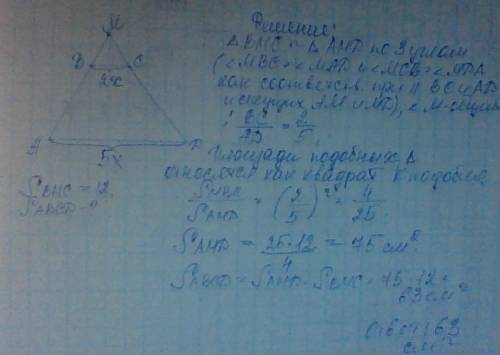 M
B C
2x
A D
5x
S BMC = 12.
S ABCD - ?
Решение:
Δ BMC ~ Δ AMD по 3 углам
(∠MBC = ∠MAD и ∠MCB = ∠MDA
как соответств. при || BC и AD
и секущих AM и MD), ∠M - общий
BC/AD = 2/5.
Площади подобных Δ
относятся как квадрат k подобия.
S MBC / S AMD = (2/5)² = 4/25.
S AMD = 25·12/4 = 75 см².
S ABCD = S AMD - S BMC = 75-12 =
63 см²
Ответ 63
см²